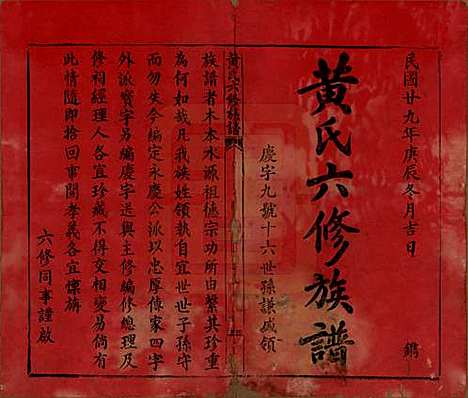 民國廿九年庚辰冬月吉日
鐫
黃氏六修族譜
慶字九號十六世孫謙威領
黃氏六修族譜
族譜者木本水源祖德宗功所由繫其珍重
為何如哉凡我族姓領執自宜世世子孫守
而勿失今編定永慶公派以忠厚傳家四字
外派寶字另編慶字送與主修編修總理及
修祠經理人各宜珍藏不得交相變易倘有
此情隨即捨回事關孝義各宜懍旃
六修同事謹啟